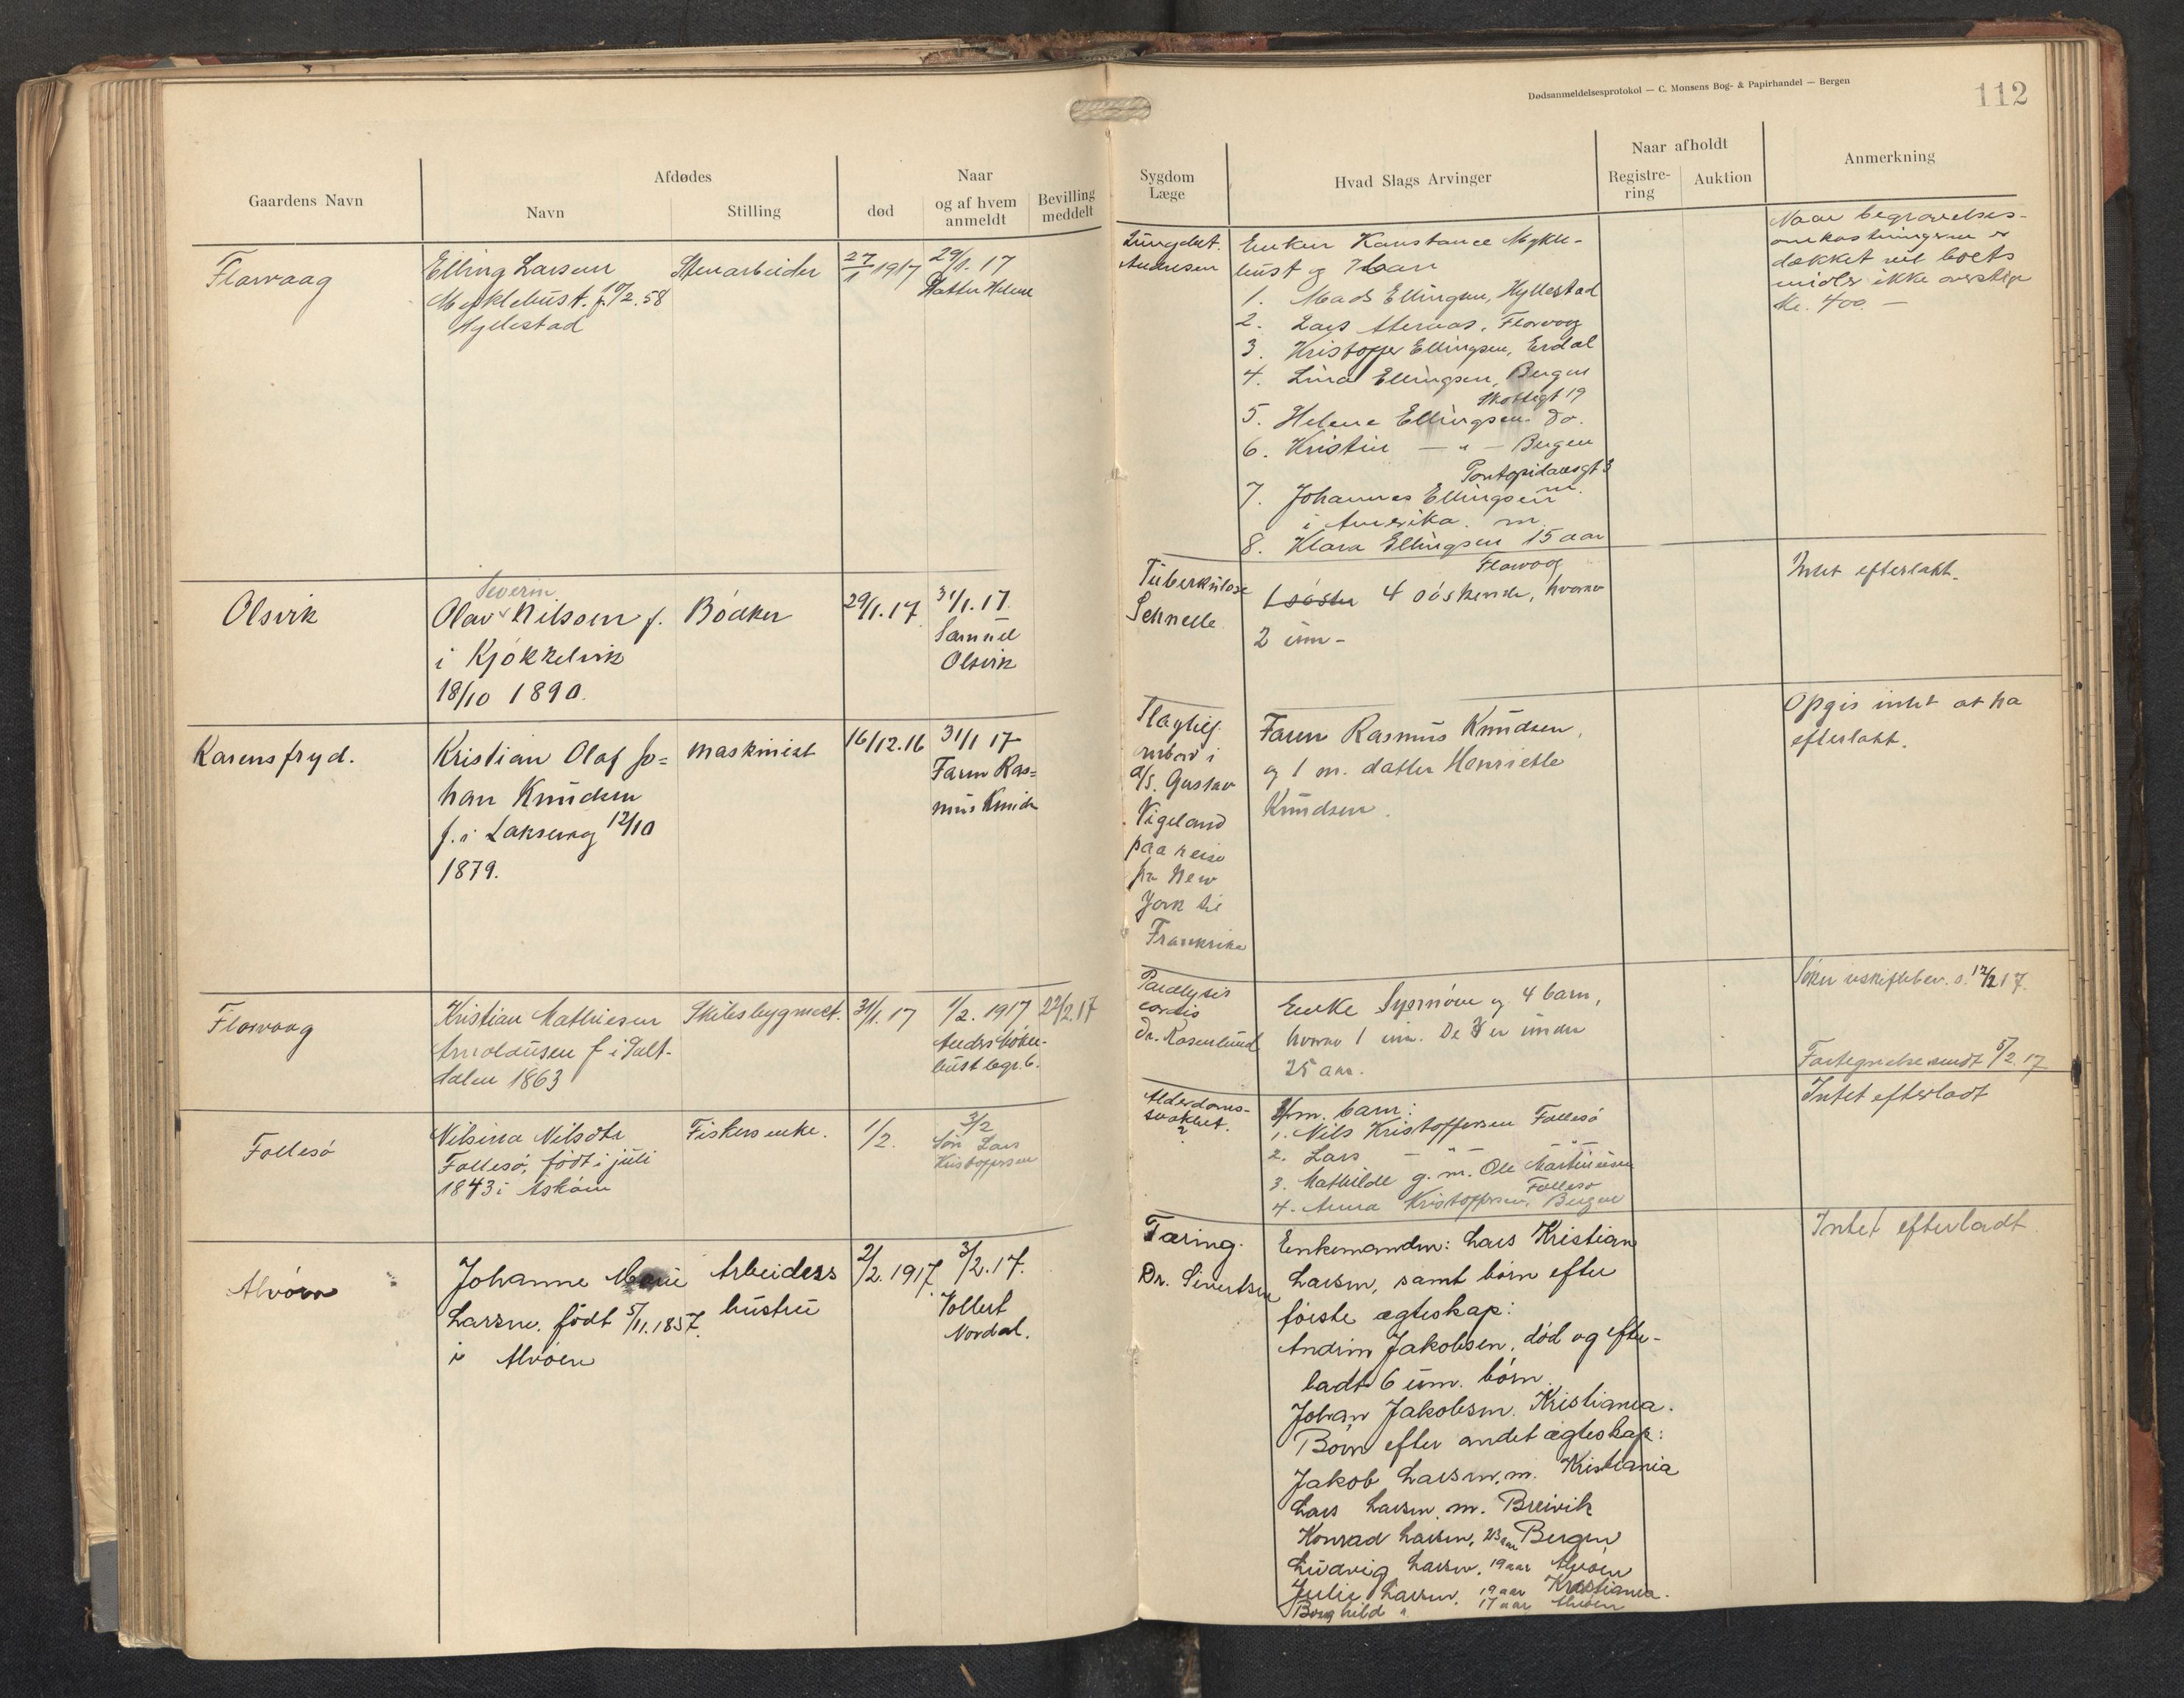 Dødsanmeldelsesprotokol — C. Monsens Bog- & Papirhandel — Bergen
112
Gaardens Navn
Afdødes
Navn
Stilling
død
Naar
og af hvem
anmeldt
Bevilling
meddelt
Sygdom
Læge
Hvad Slags Arvinger
Naar afholdt
Registre-
ring
Auktion
Anmerkning
Florvaag
Elling Larsen
Myklebust. f. 10/2.58
Hyllestad
Stenarbeider
27/1 1917
29/1.17
Datter Helene
Lungebet.
Andersen
Enken Konstance Mykle-
bust og
1. Mads Ellingsen, Hyllestad
2. Lars Florvaag
3. Kristoffer Ellingsen, Erdal
4. Lina Ellingsen, Bergen
Skottegt 19
5. Helene Ellingsen. do.
6. Kristin — " — Bergen
Pontopidansgt 3
7. Johannes Ellingsen m.
i Amerika. m.
8. Klara Ellingsen 15 aar
Florvog
Naar begravelses-
omkostningerne er
dækket vil boets
midler ikke overstige
Kr. 400.—
Olsvik
Severin
Olav Nilssen f.
i Kjøkkelvik
18/10 1890.
Bødker
29/1.17
31/1.17.
Samuel
Olsvik
Tuberkulose
Schnelle
1 søster 4 søskende, hvorav
2 um-
Intet efterlatt.
Karensfryd.
Kristian Olaf Jo=
han Knudsen
f. i Laksevaag 12/10
1879.
maskinist
16/12.16
31/1 17
Faren Ras=
mus Knuds
Slagtilf.
ombord i
d/s. Gustav
Vigeland
paa reise
fra New
York til
Frankrike
Faren Rasmus Knudsen,
og 1 m. datter Henriette
Knudsen.
Opgis intet at ha
efterlatt.
Florvaag
Kristian Mathiesen
Arnoldusen f i Salt-
dalen 1863
Skibsbygmest.
31/1.17
1/2. 1917
Anders
begr.b.
22/2.17
Paralysis
cordis
Dr. Rosenlund
Enke Synnøve og 4 barn,
hvorav 1 um. De 3 er under
25 aar.
Søker uskiftebev. s. 12/2 17.
Fortegnelse sendt 5/2.17
Follesø
Nilsina Nilsdtr
Follesø, født i juli
1843 i Askøen
Fiskers enke.
1/2.
3/2
Søn Lars
Kristoffersen
Alderdoms-
svakhet.
?
m. barn:
1. Nils Kristoffersen Follesø
2. Lars — " — " —
3. Mathilde g. m. Ole Martinusen
Follesø
4. Anna Kristoffersen, Bergen
Intet efterladt
Alvøen
Johanne Marie
Larsen. født 5/11.1857.
i Alvøen
Arbeiders
hustru
2/2. 1917
3/2.17.
Vollert
Nordal.
Tæring.
Dr. Sivertsen
Enkemanden: Lars Kristian
Larsen, samt børn efter
første ægteskap:
Andrine Jakobsen, død og efter-
ladt 6 um. børn
Johan Jakobsen. Kristiania.
Børn efter andet ægteskap:
Jakob Larsen. m. Kristiania
Lars Larsen. m. Breivik
Konrad Larsen, 23 aar Bergen
Ludvig Larsen. 19 aar Alvøen
Julie Larsen. 19 aar Kristiania.
Borghild " 17 aar Alvøen
Intet efterladt